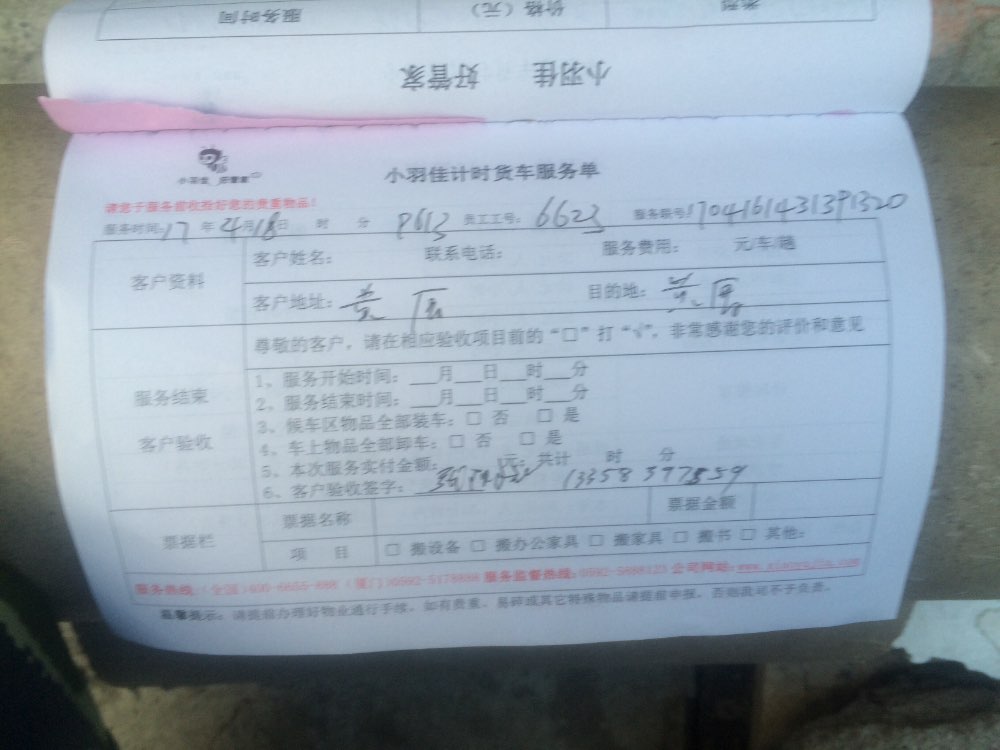 服务时间 价格（元） 类型
小羽佳 好管家
小羽佳 好管家
小羽佳计时货车服务单
请您于服务前收拾好您的贵重物品！
服务时间：17年4月18日 时 分 8613 员工工号：6623 服务账号：1704161431391320
客户资料
客户姓名： 联系电话： 服务费用： 元/车/趟
客户地址：黄厝 目的地：黄厝
尊敬的客户，请在相应验收项目前的“□”打“√”，非常感谢您的评价和意见
服务结束
客户验收
1、服务开始时间：___月___日___时___分
2、服务结束时间：___月___日___时___分
3、候车区物品全部装车：□ 否 □ 是
4、车上物品全部卸车：□ 否 □ 是
5、本次服务实付金额： 元；共计 时 分
6、客户验收签字： 13358397859
票据栏
票据名称 票据金额
项 目 □ 搬设备 □ 搬办公家具 □ 搬家具 □ 搬书 □ 其他：
服务热线：（全国）400-6655-888（厦门）0592-5178888 服务监督热线：0592-5888123 公司网站：www.xiaoyujia.com
温馨提示：请提前办理好物业通行手续，如有贵重、易碎或其它特殊物品请提前申报，否则我司不予负责。